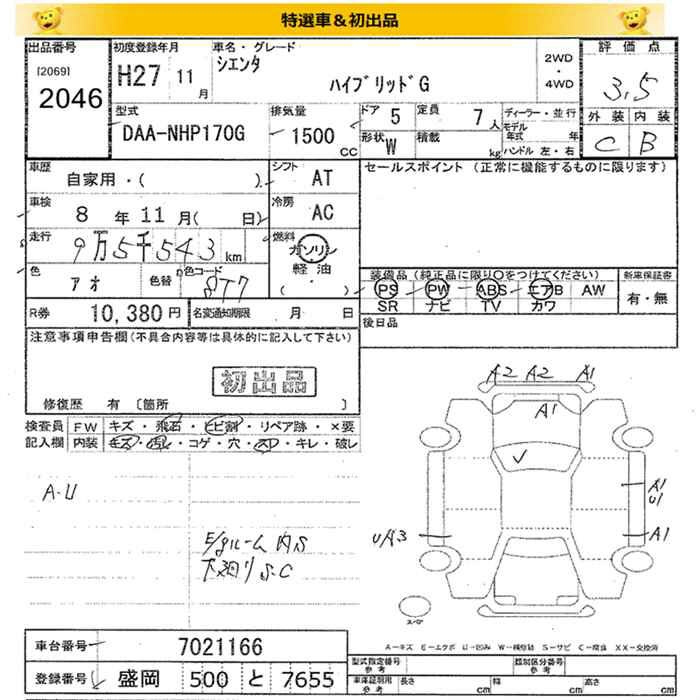 特選車&初出品
出品番号
[2069]
2046
初度登録年月
H27 11月
車名・グレード
シエンタ
ハイブリッドG
2WD
・
4WD
評価点
3.5
外装 内装
C B
型式
DAA-NHP170G
排気量
1500
CC
ドア 5
定員 7人
形状 W
積載 kg
ディーラー・並行
モデル年式 年
ハンドル 左・右
車歴
自家用・( )
シフト
AT
車検
8年11月( 日)
冷房
AC
走行
9万5千543km
燃料
ガソリン
軽油
( ・ )
色
アオ
色替
色コード
8T7
R券
10,380円
名変通知期限 月 日
セールスポイント (正常に機能するものに限ります)
装備品 (純正品に限り○をつけてください)
PS PW ABS エアB AW
SR ナビ TV カワ
新車保証書
有・無
後日品
注意事項申告欄 (不具合内容等は具体的に記入して下さい)
初出品
修復歴 有 〔箇所 〕
検査員記入欄
FW キズ・飛石・ヒビ割・リペア跡・×要
内装 キズ・汚レ・コゲ・穴・スレ・キレ・破レ
A-U
E/gルーム内S
下廻りS.C
A2 A2 A1
A1
A1
U1
UA3
A1
スペア
A-キズ E-エクボ U-凹み W-補修跡 S-サビ C-腐食 XX-交換済
車台番号
7021166
登録番号
盛岡 500 と 7655
型式指定番号
参考
類別区分番号
参考
車庫証明用
参考
長さ cm 幅 cm 高さ cm